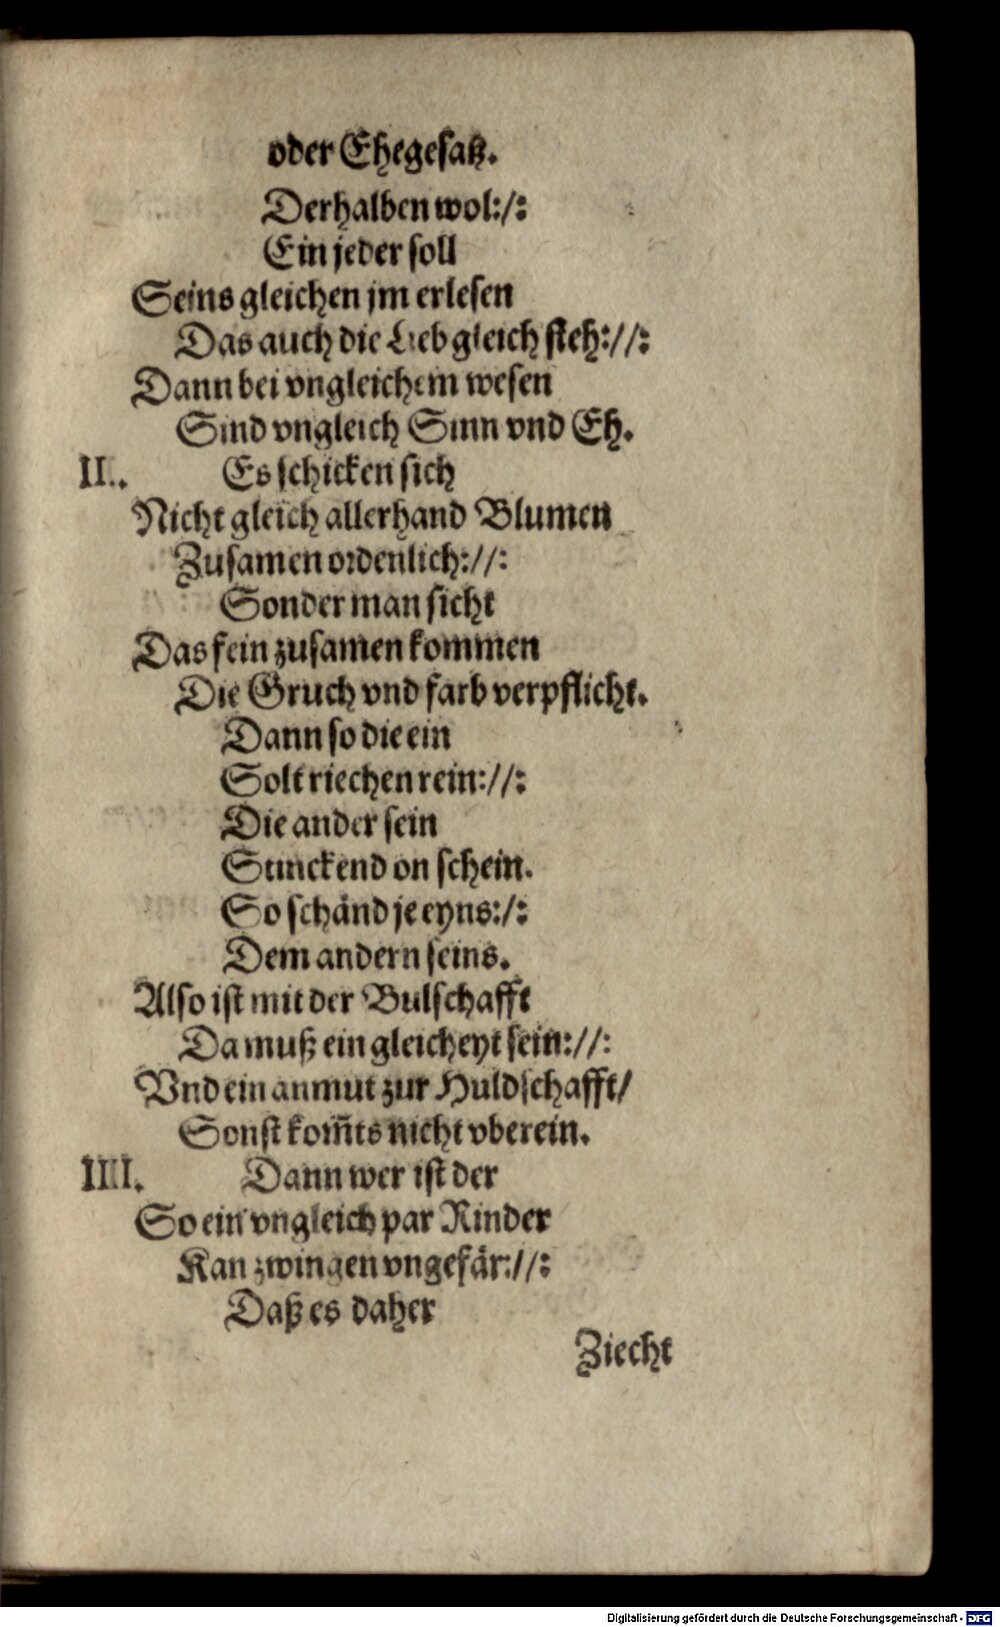 oder Ehegesatz.
Derhalben wol:/:
Ein jeder soll
Seins gleichen jm erlesen
Das auch die Lieb gleich steh://:
Dann bei vngleichem wesen
Sind vngleich Sinn vnd Eh.
II.. Es schicken sich
Nicht gleich allerhand Blumen
Zusamen ordenlich://:
Sonder man sicht
Das fein zusamen kommen
Die Gruch vnd farb verpflicht.
Dann so die ein
Solt riechen rein://:
Die ander sein
Stinckend on schein.
So schänd je eyns:/:
Dem andern seins.
Also ist mit der Bulschafft
Da muß ein gleicheyt sein://:
Vnd ein anmut zur Huldschafft/
Sonst kom̃ts nicht vberein.
IIII. Dann wer ist der
So ein vngleich par Rinder
Kan zwingen vngefär://:
Daß es daher
Ziecht
Digitalisierung gefördert durch die Deutsche Forschungsgemeinschaft - DFG